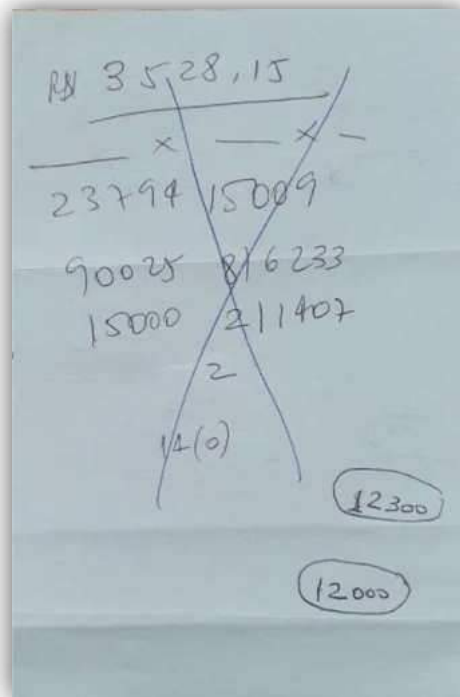 35,28,15
— x — x —
23794 15009
90025 816233
15000 211407
2
14(0)
12300
12000